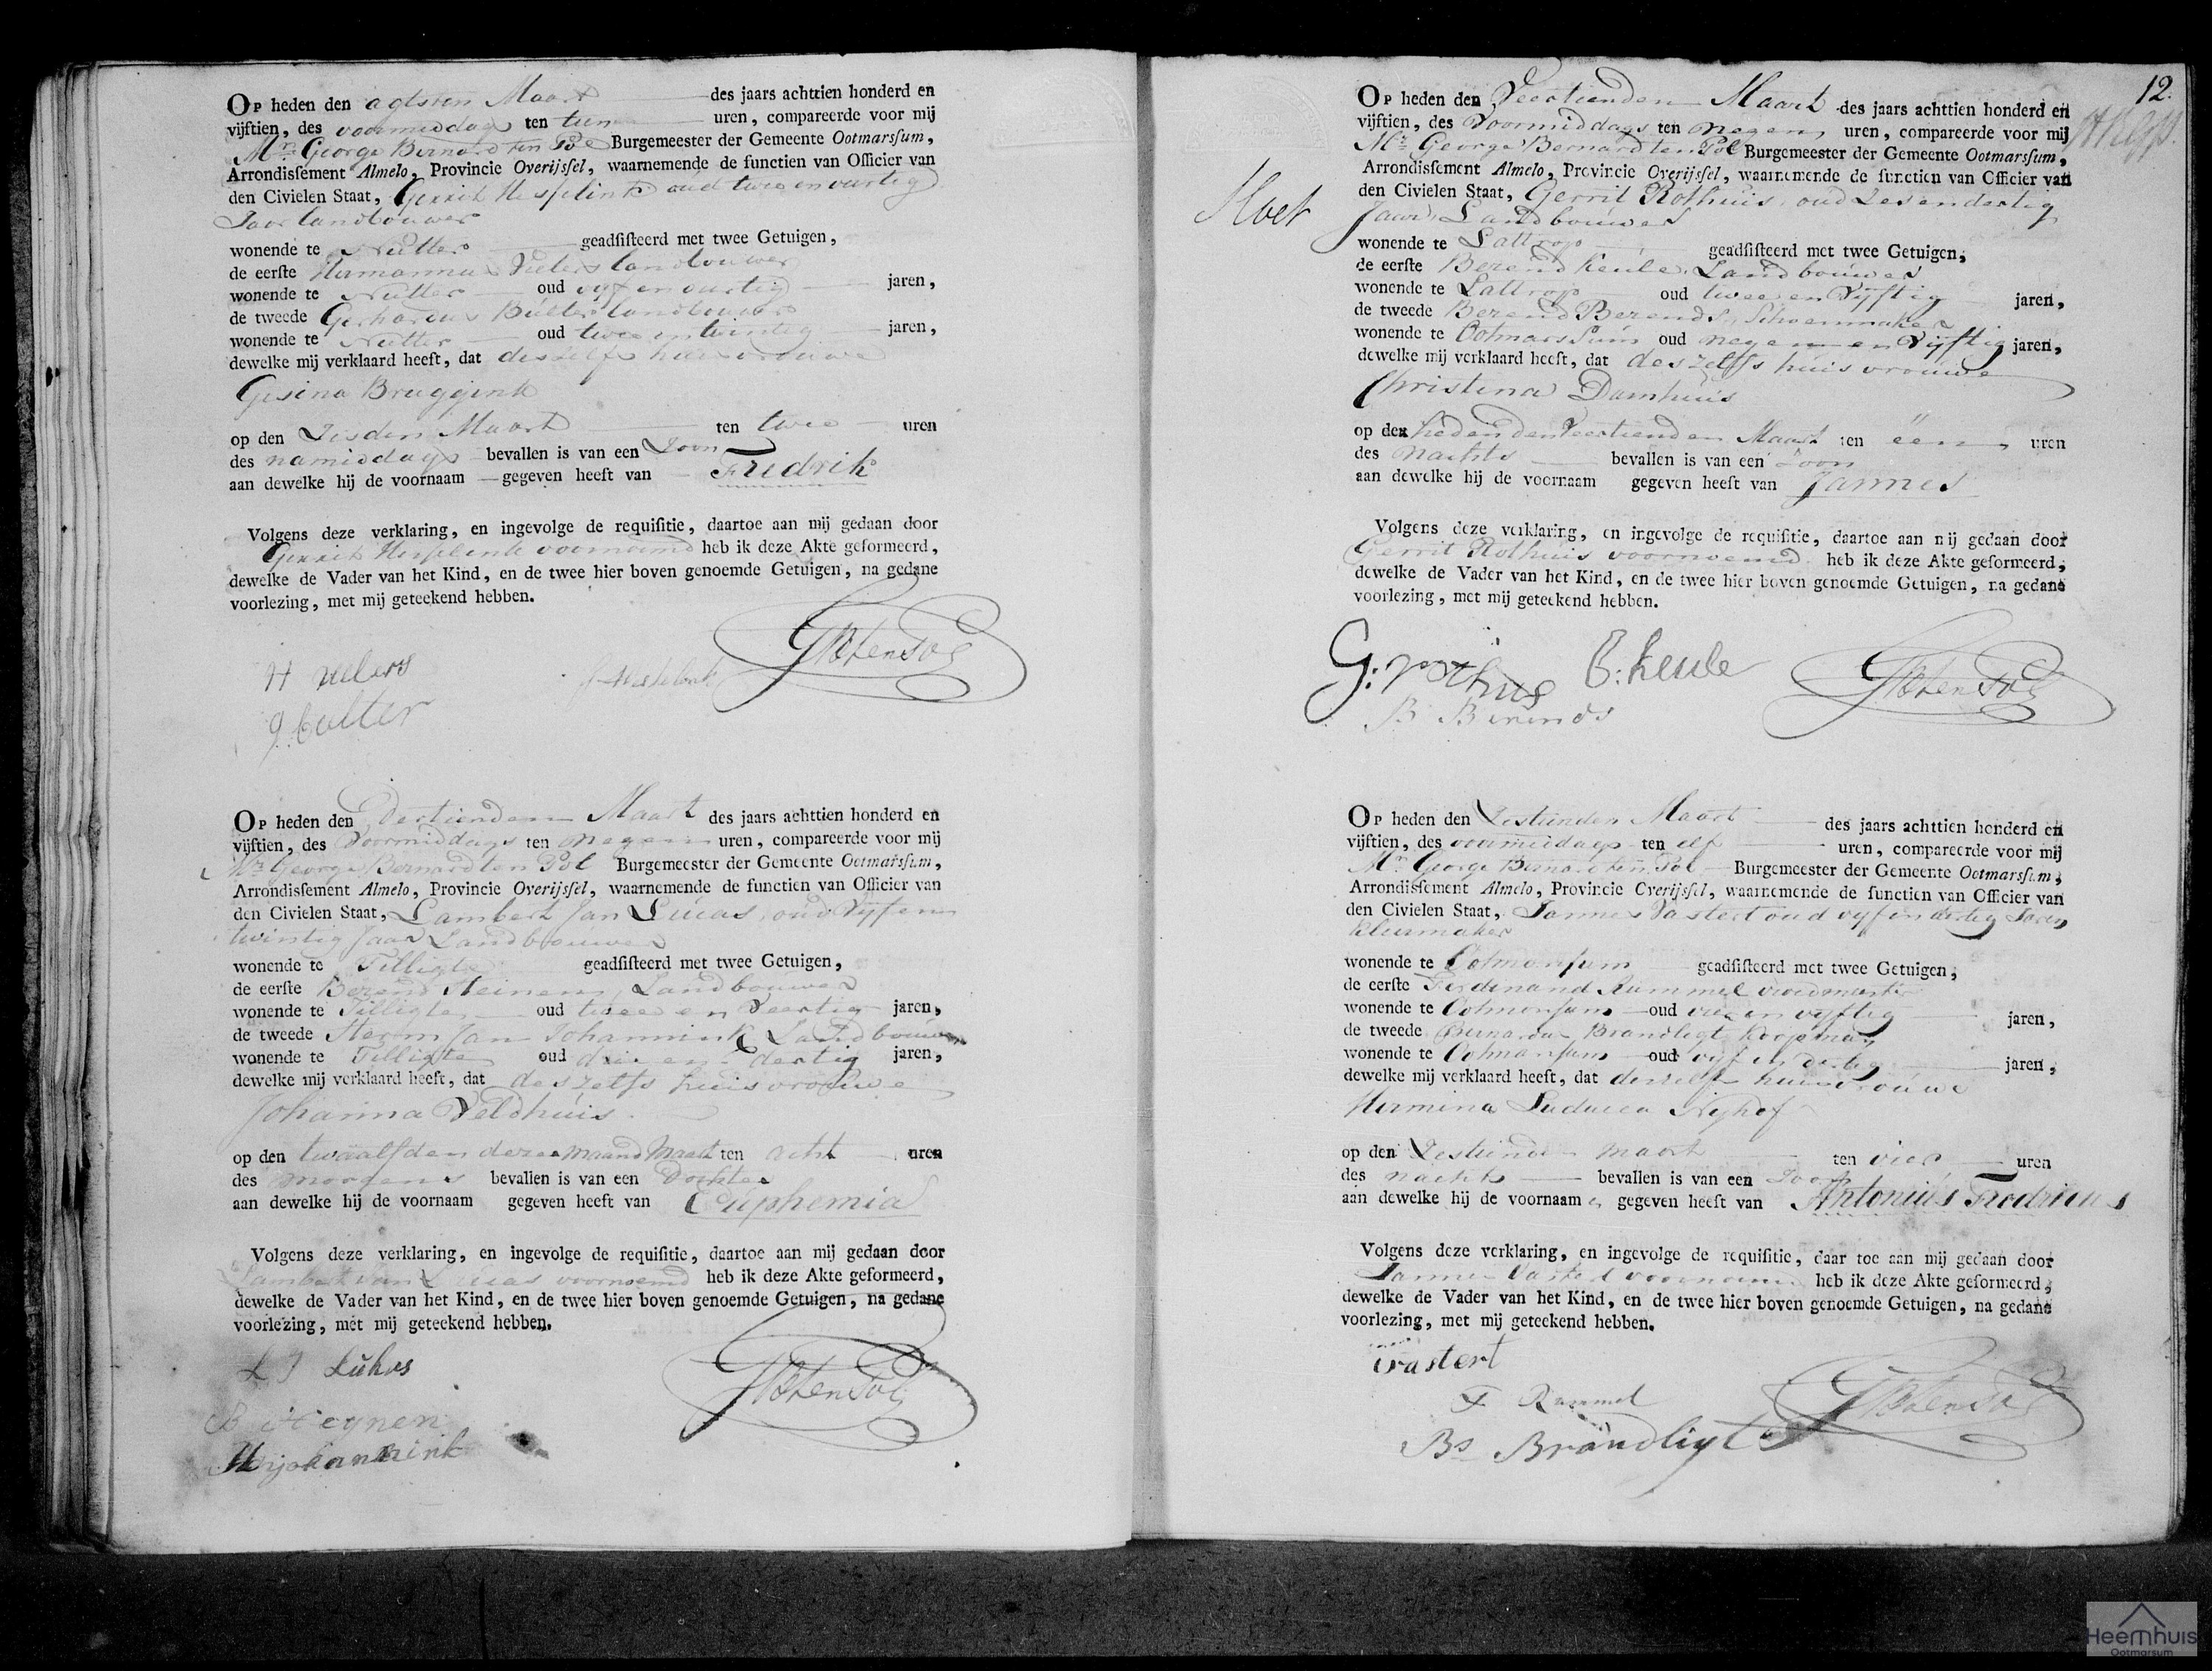 OP heden den agtsten Maart des jaars achttien honderd en
vijftien, des voormiddags ten tien uren, compareerde voor mij
Mr. George Bernard ten Pol Burgemeester der Gemeente Ootmarsſum,
Arrondisſement Almelo, Provincie Overijsſel, waarnemende de functien van Officier van
den Civielen Staat, Gerrit Hesselink oud twee en
Jaar landbouwer
wonende te Nutter geadſiſteerd met twee Getuigen,
de eerſte Hermannus Velers landbouwer
wonende te Nutter oud vyf en jaren,
de tweede Gerhardus Bulter landbouwer
wonende te Nutter oud twee en twintig jaren,
dewelke mij verklaard heeft, dat deszelfs huisvrouwe
Gesina Bruggink
op den Zesden Maart ten twee uren
des namiddags bevallen is van een Zoon
aan dewelke hij de voornaam gegeven heeft van Fredrik
Volgens deze verklaring, en ingevolge de requiſitie, daartoe aan mij gedaan door
Gerrit Hesselink voornoemd heb ik deze Akte geformeerd,
dewelke de Vader van het Kind, en de twee hier boven genoemde Getuigen, na gedane
voorlezing, met mij geteekend hebben.
H velers
g bulter
GBtenPol
OP heden den dertienden Maart des jaars achttien honderd en
vijftien, des Voormiddags ten negen uren, compareerde voor mij
Mr. George Bernard ten Pol Burgemeester der Gemeente Ootmarsſum,
Arrondisſement Almelo, Provincie Overijsſel, waarnemende de functien van Officier van
den Civielen Staat, Lambert Jan Lucas, oud Vyf en
twintig Jaar Landbouwer
wonende te Tilligte geadſiſteerd met twee Getuigen,
de eerſte Berend Heinen, Landbouwer
wonende te Tilligte oud twee en Veertig jaren,
de tweede Herm Jan Johannink Landbouwer
wonende te Tilligte oud drie en dertig jaren,
dewelke mij verklaard heeft, dat deszelfs huisvrouwe
Johanna Veldhuis
op den twaalfden dezer maand Maart ten acht uren
des morgens bevallen is van een Dochter
aan dewelke hij de voornaam gegeven heeft van Euphemia
Volgens deze verklaring, en ingevolge de requiſitie, daartoe aan mij gedaan door
Lambert Jan Lucas voornoemd heb ik deze Akte geformeerd,
dewelke de Vader van het Kind, en de twee hier boven genoemde Getuigen, na gedane
voorlezing, met mij geteekend hebben.
L J Lukes
B Heynen
H johannink
GBtenPol
12.
OP heden den Veertienden Maart des jaars achttien honderd en
vijftien, des Voormiddags ten negen uren, compareerde voor mij
Mr. George Bernard ten Pol Burgemeester der Gemeente Ootmarsſum,
Arrondisſement Almelo, Provincie Overijsſel, waarnemende de functien van Officier van
den Civielen Staat, Gerrit Rothuis, oud Zesendertig
Jaar, Landbouwer
wonende te Lattrop geadſiſteerd met twee Getuigen,
de eerſte Berend Keule, Landbouwer
wonende te Lattrop oud twee en Vijftig jaren,
de tweede Berend Berends, Schoenmaker
wonende te Ootmarssum oud negen en Vijftig jaren,
dewelke mij verklaard heeft, dat deszelfs huisvrouwe
Christina Damhuis
op den heden den Veertienden Maart ten één uren
des nachts bevallen is van een Zoon
aan dewelke hij de voornaam gegeven heeft van Jannes
Volgens deze verklaring, en ingevolge de requiſitie, daartoe aan mij gedaan door
Gerrit Rothuis voornoemd heb ik deze Akte geformeerd,
dewelke de Vader van het Kind, en de twee hier boven genoemde Getuigen, na gedane
voorlezing, met mij geteekend hebben.
G: rothuis B: keule
B Berends
GBtenPol
OP heden den Zestienden Maart des jaars achttien honderd en
vijftien, des voormiddags ten elf uren, compareerde voor mij
Mr. George Bernard ten Pol Burgemeester der Gemeente Ootmarsſum,
Arrondisſement Almelo, Provincie Overijsſel, waarnemende de functien van Officier van
den Civielen Staat, Jannes Vastert oud vyf en dertig Jaren
kleermaker
wonende te Ootmarsum geadſiſteerd met twee Getuigen,
de eerſte Ferdinand Rummel vroedmeester
wonende te Ootmarsum oud vier en vyftig jaren,
de tweede Bernardus Brandligt Koopman
wonende te Ootmarsum oud vyf en dertig jaren,
dewelke mij verklaard heeft, dat deszelfs huisvrouwe
Hermina Nyhof
op den Zestienden maart ten vier uren
des nachts bevallen is van een Zoon
aan dewelke hij de voornaam gegeven heeft van Antonius Fredricus
Volgens deze verklaring, en ingevolge de requiſitie, daar toe aan mij gedaan door
Jannes Vastert voornoemd heb ik deze Akte geformeerd,
dewelke de Vader van het Kind, en de twee hier boven genoemde Getuigen, na gedane
voorlezing, met mij geteekend hebben.
vastert
F Rummel
Bs Brandligt
GBtenPol
Heemhuis
Ootmarsum